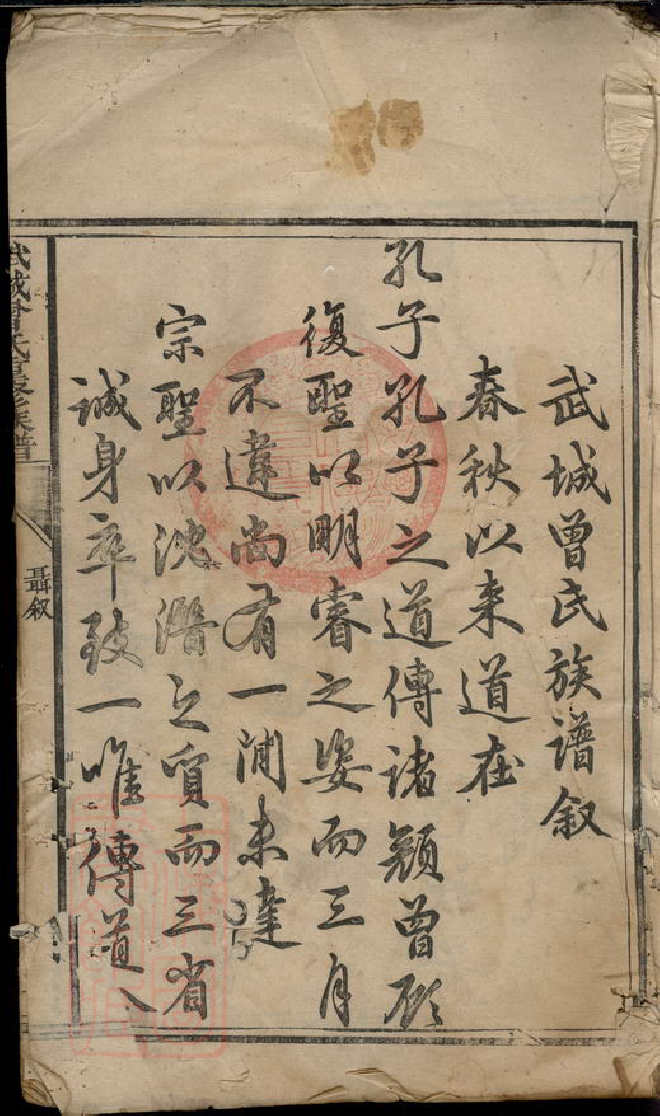 武城曾氏族譜叙
春秋以來道在
孔子孔子之道傳諸顏曾顧
復聖以明睿之姿而三月
不違尚有一間未達
宗聖以沈潛之質而三省
誠身卒致一唯傳道八
武城曾氏重修族譜
聶叙